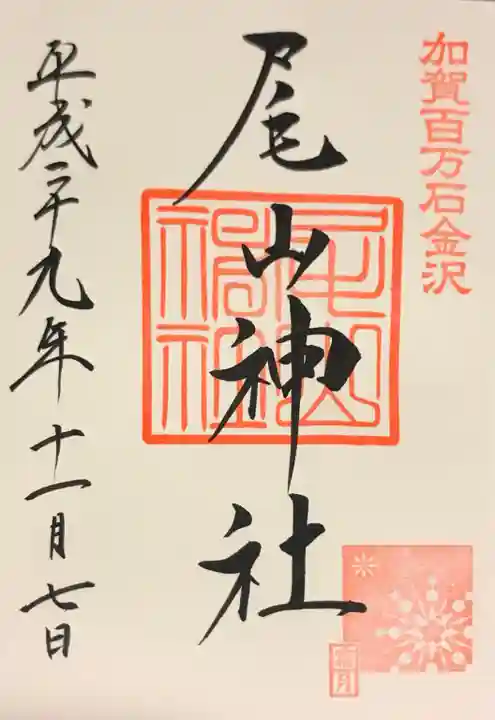 加賀百万石金沢
尾山神社
平成二十九年十一月七日
尾山
神社
霜月